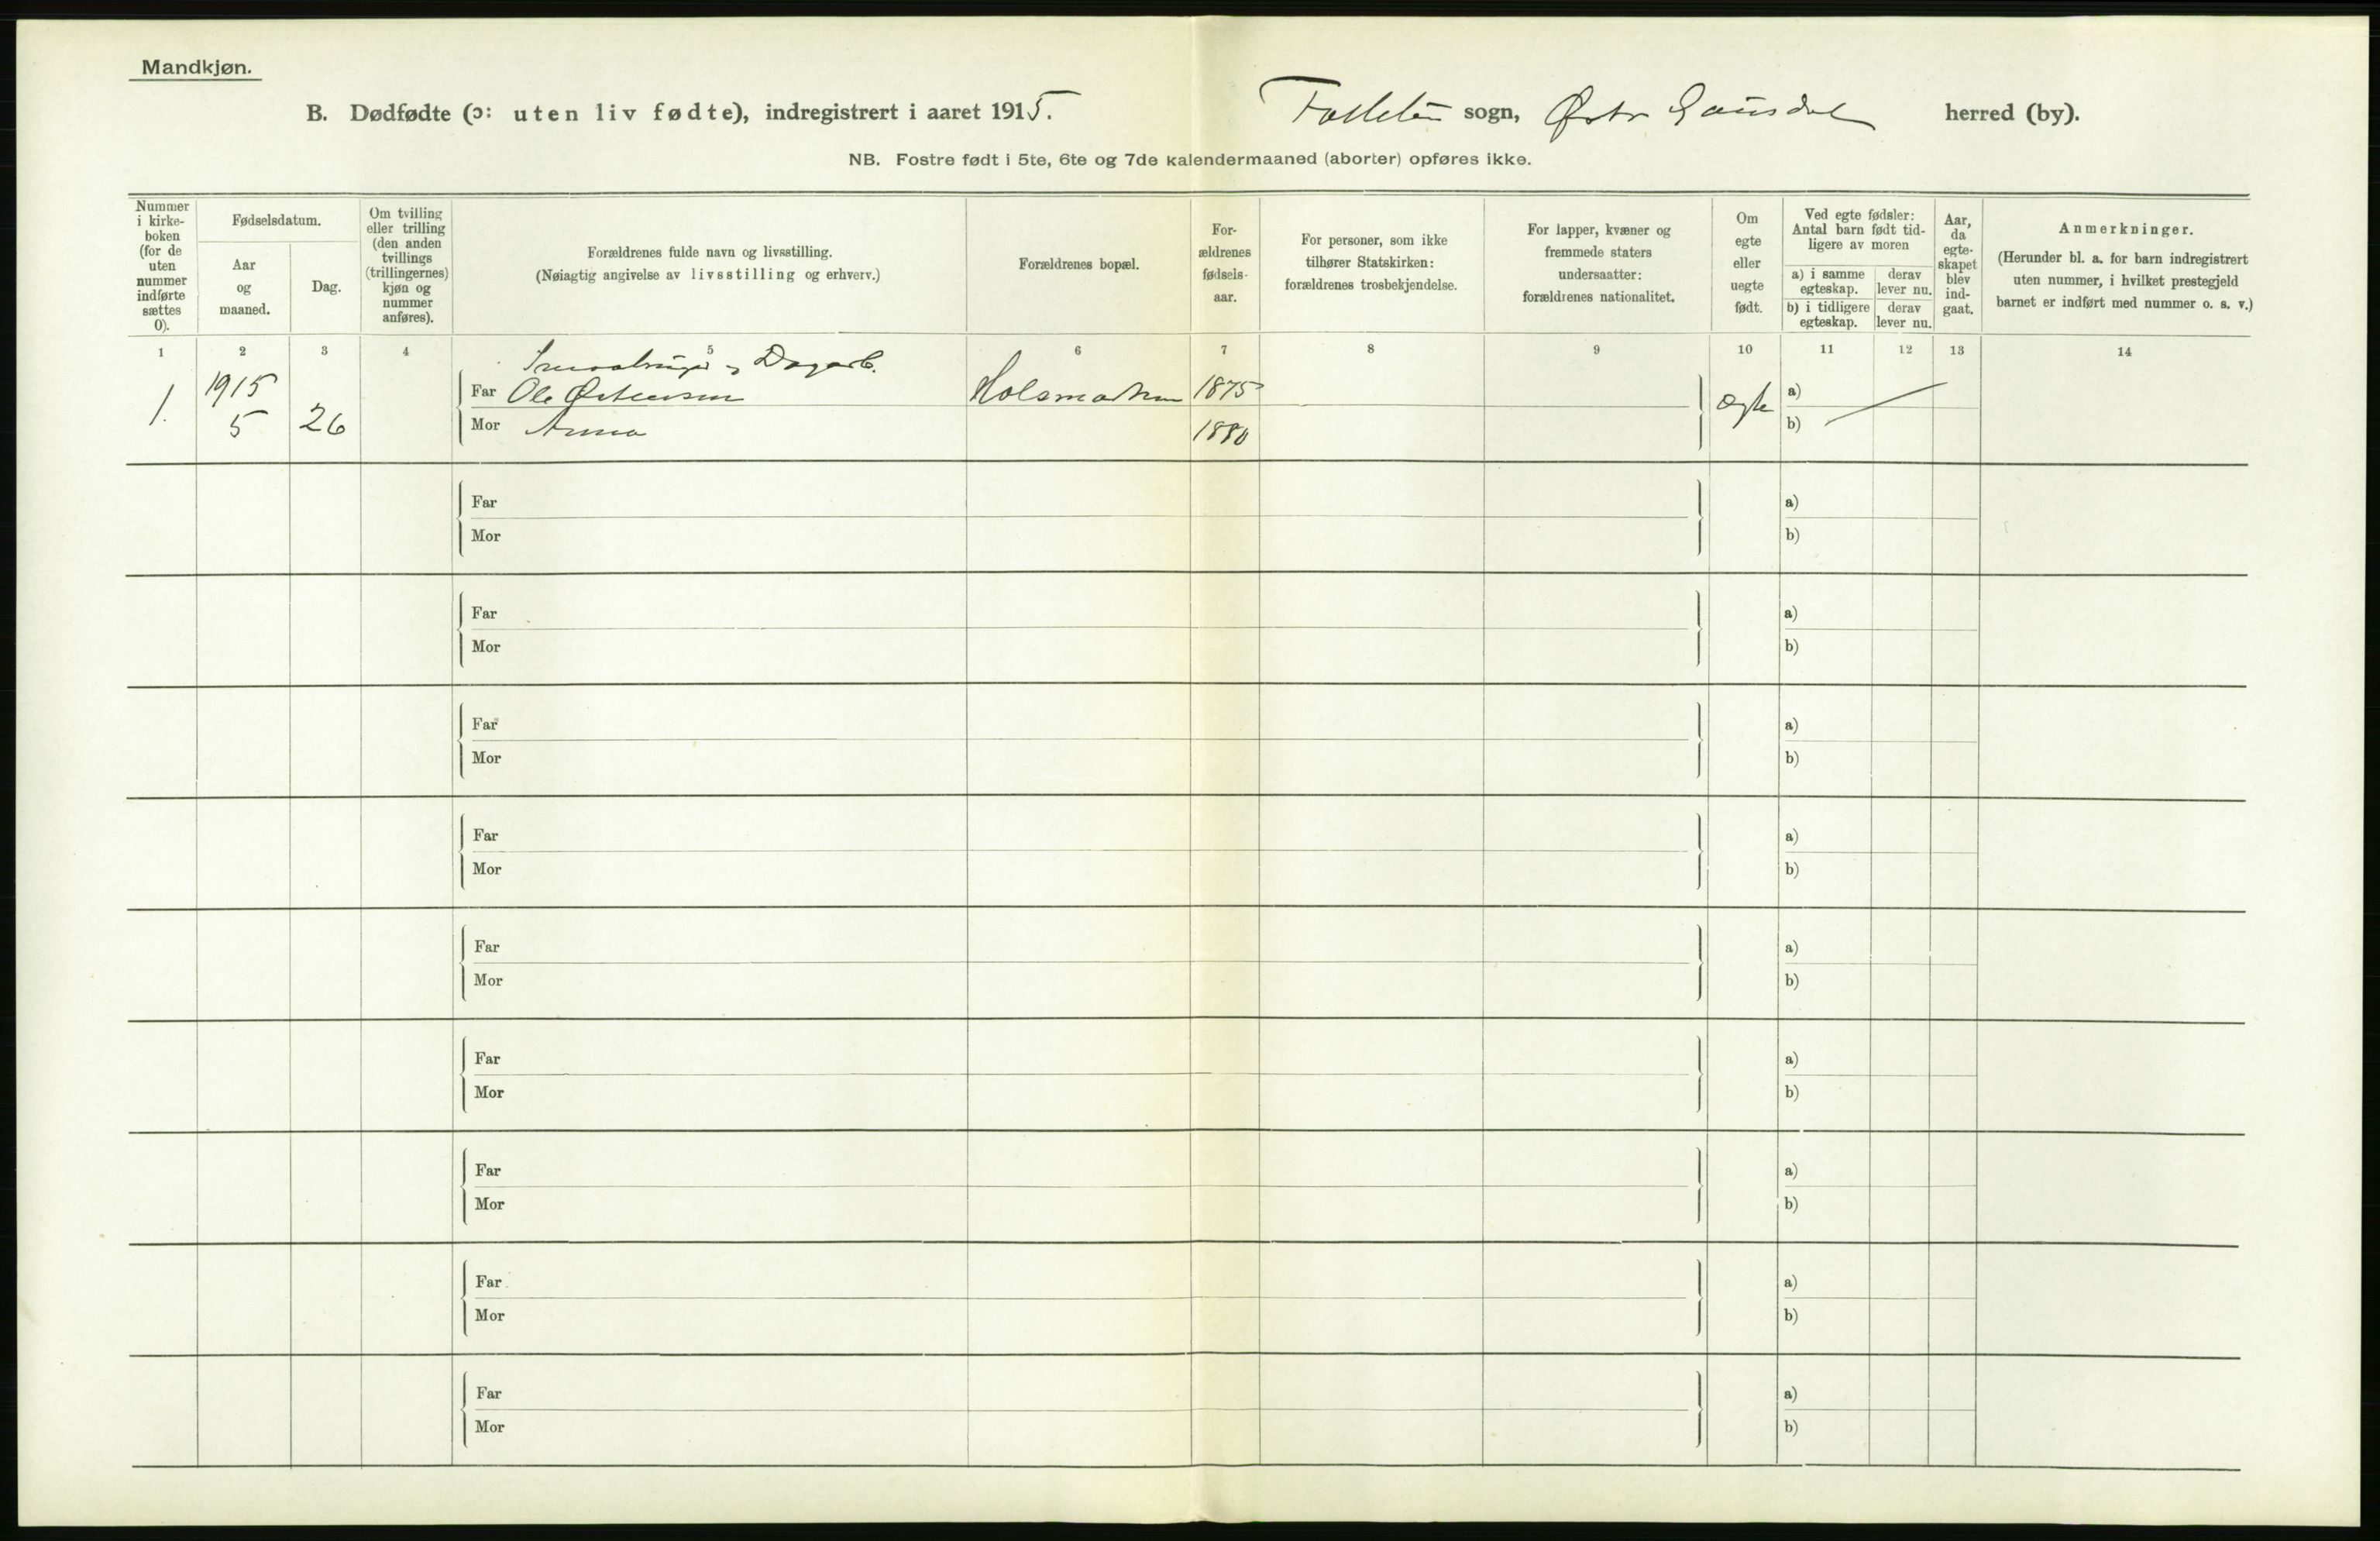 Mandkjøn.
B. Dødfødte (ɔ: uten liv fødte), indregistrert i aaret 1915. Follebu sogn, Østr Gausdal herred (by).
NB. Fostre født i 5te, 6te og 7de kalendermaaned (aborter) opføres ikke.
Nummer i kirke-boken (for de uten nummer indførte sættes 0).
Fødselsdatum.
Aar og maaned.
Dag.
Om tvilling eller trilling (den anden tvillings (trillingernes) kjøn og nummer anføres).
Forældrenes fulde navn og livsstilling.
(Nøiagtig angivelse av livsstilling og erhverv.)
Forældrenes bopæl.
For-ældrenes fødsels-aar.
For personer, som ikke tilhører Statskirken: forældrenes trosbekjendelse.
For lapper, kvæner og fremmede staters undersaatter: forældrenes nationalitet.
Om egte eller uegte født.
Ved egte fødsler: Antal barn født tid-ligere av moren
a) i samme egteskap.
derav lever nu.
b) i tidligere egteskap.
derav lever nu.
Aar, da egte-skapet blev ind-gaat.
Anmerkninger.
(Herunder bl. a. for barn indregistrert uten nummer, i hvilket prestegjeld barnet er indført med nummer o. s. v.)
1 2 3 4 5 6 7 8 9 10 11 12 13 14
Smaabruger og Dagarb.
1. 1915 5 26 Far Ole Østensen Holsmarken 1875 ægte a)
Mor Anna 1880 b)
Far a)
Mor b)
Far a)
Mor b)
Far a)
Mor b)
Far a)
Mor b)
Far a)
Mor b)
Far a)
Mor b)
Far a)
Mor b)
Far a)
Mor b)
Far a)
Mor b)